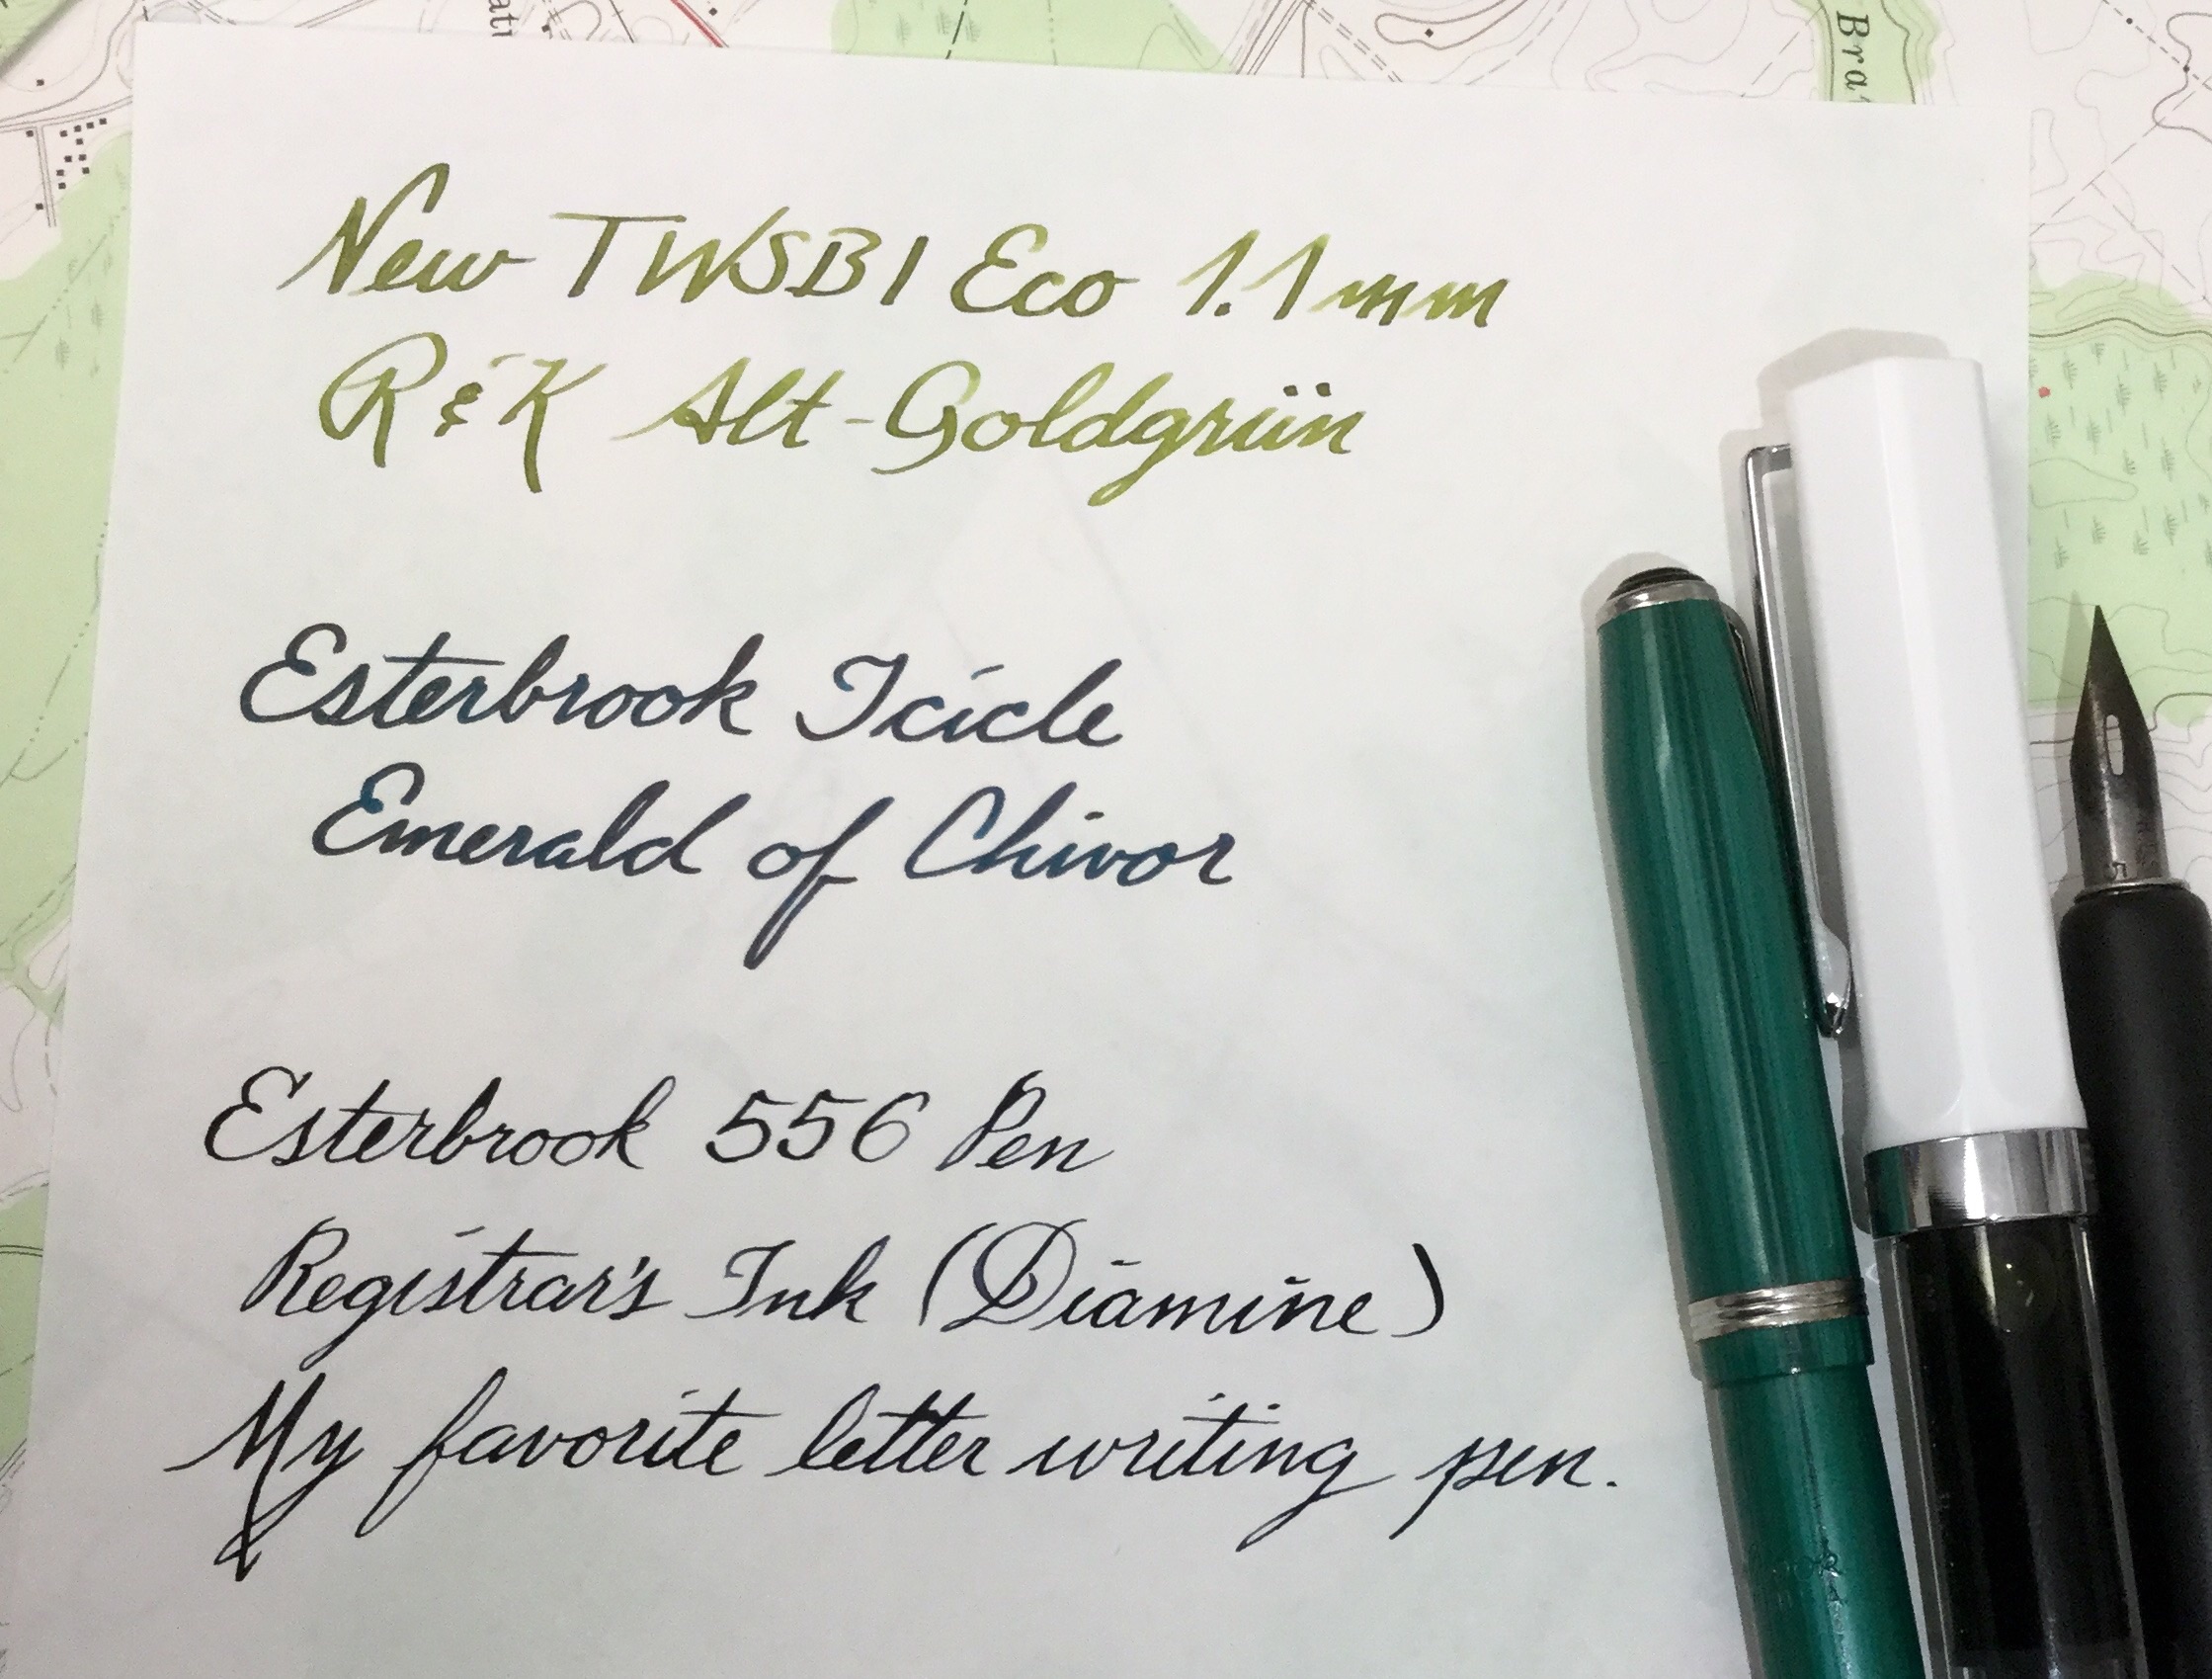 New TWSBI Eco 1.1mm
R&K Alt-Goldgrün
Esterbrook Icicle
Emerald of Chivor
Esterbrook 556 Pen
Registrar's Ink (Diamine)
My favorite letter writing pen.